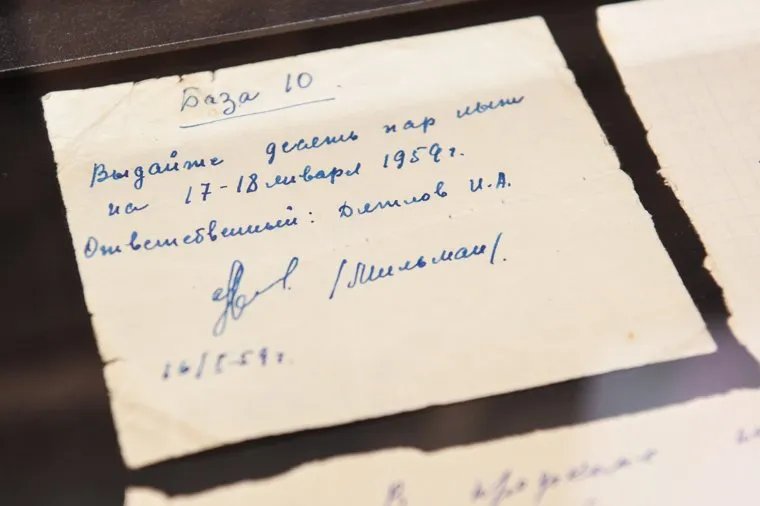 База 10
Выдайте десять пар лыж
на 17-18 января 1959 г.
Ответственный: Дятлов И.А.
/Мильман/.
16/I-59 г.
В